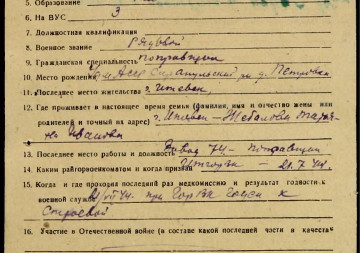 5. Образование
6. На ВУС 3
7. Должностная квалификация
8. Военное звание Рядовой
9. Гражданская специальность поправщик
10. Место рождения Удм АССР Сарапульский р-н д. Петровка
11. Последнее место жительства г. Ижевск
12. Где проживает в настоящее время семья (фамилия, имя и отчество жены или
родителей и точный их адрес) г. Ижевск —
Ивановна
13. Последнее место работы и должность Завод 74 — поправщик
14. Каким райгорвоенкоматом и когда призван — 21.7.44.
15. Когда и где проходил последний раз медкомиссию и результат годности к
военной службе 44. при Годен к
Строевой
16. Участие в Отечественной войне (в составе какой последней части и качестве